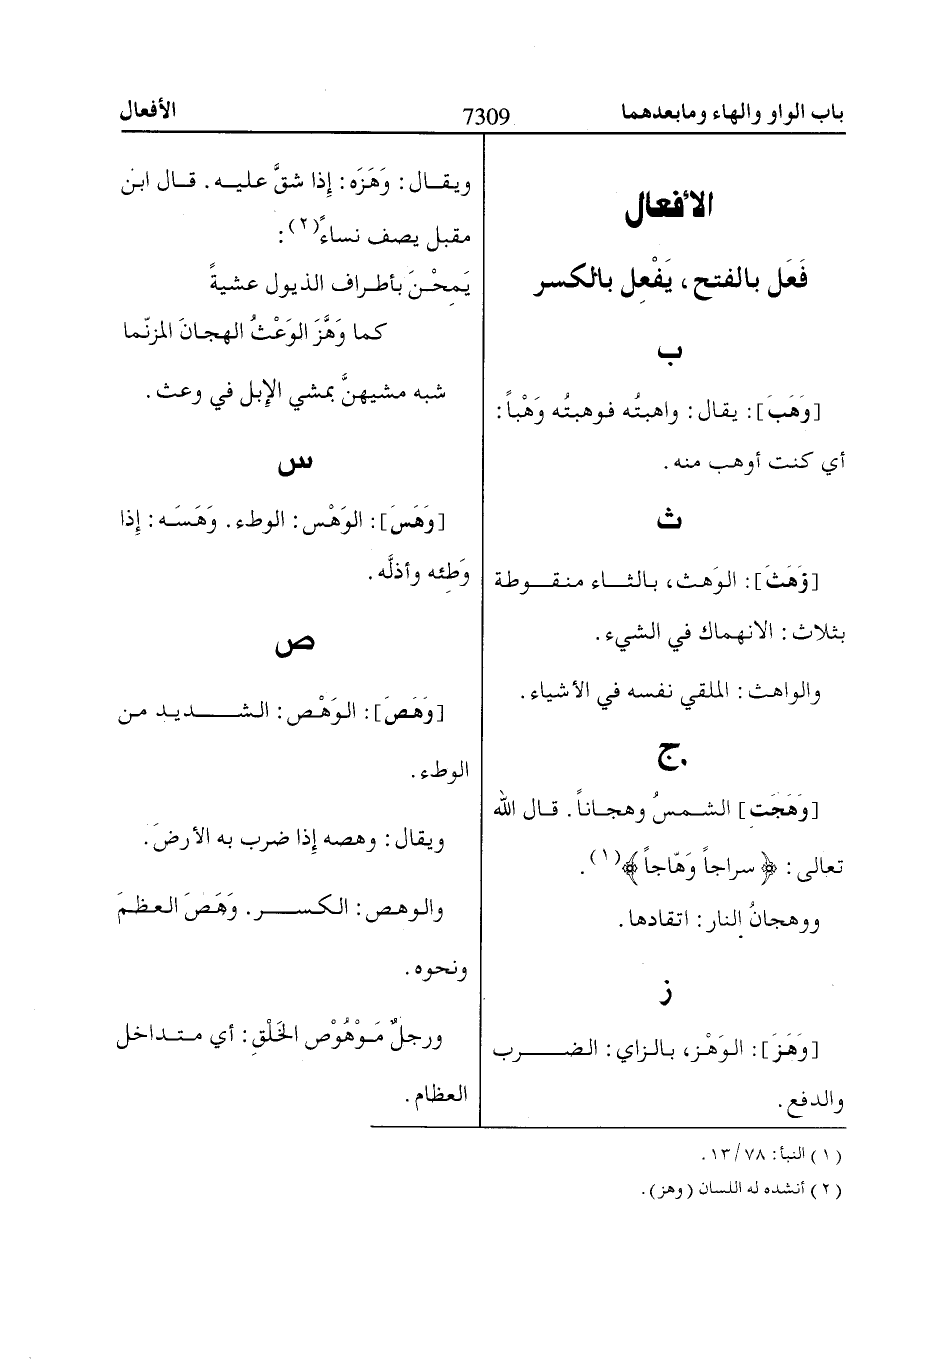 باب الواو والهاء ومابعدهما
7309
الأفعال
الأفعال
فَعَل بالفتح، يَفْعِل بالكسر
ب
[وَهَبَ]: يقال: واهبتُه فوهبتُه وَهْباً:
أي كنت أوهب منه.
ث
[وَهَثَ]: الوَهث، بالثاء منقوطة
بثلاث: الانهماك في الشيء.
والواهث: الملقي نفسه في الأشياء.
ج
[وَهَجَت] الشمسُ وهجاناً. قال الله
تعالى: ﴿سراجاً وَهّاجاً﴾(١).
ووهجانُ النار: اتقادها.
ز
[وَهَزَ]: الوَهْز، بالزاي: الضرب
والدفع.
ويقال: وَهَزَه: إذا شقَّ عليه. قال ابن
مقبل يصف نساءً(٢):
يَمِحْنَ بأطراف الذيول عشيةً
كما وَهَّزَ الوَعْثُ الهجانَ المزنّما
شبه مشيهنَّ بمشي الإبل في وعث.
س
[وَهَسَ]: الوَهْس: الوطء. وَهَسَه: إذا
وَطِئه وأذلَّه.
ص
[وَهَصَ]: الوَهْص: الشديد من
الوطء.
ويقال: وهصه إذا ضرب به الأرضَ.
والوهص: الكسر. وَهَصَ العظمَ
ونحوه.
ورجلٌ مَوْهُوْص الخَلْقِ: أي متداخل
العظام.
(١) النبأ: ٧٨/ ١٣.
(٢) أنشده له اللسان (وهز).